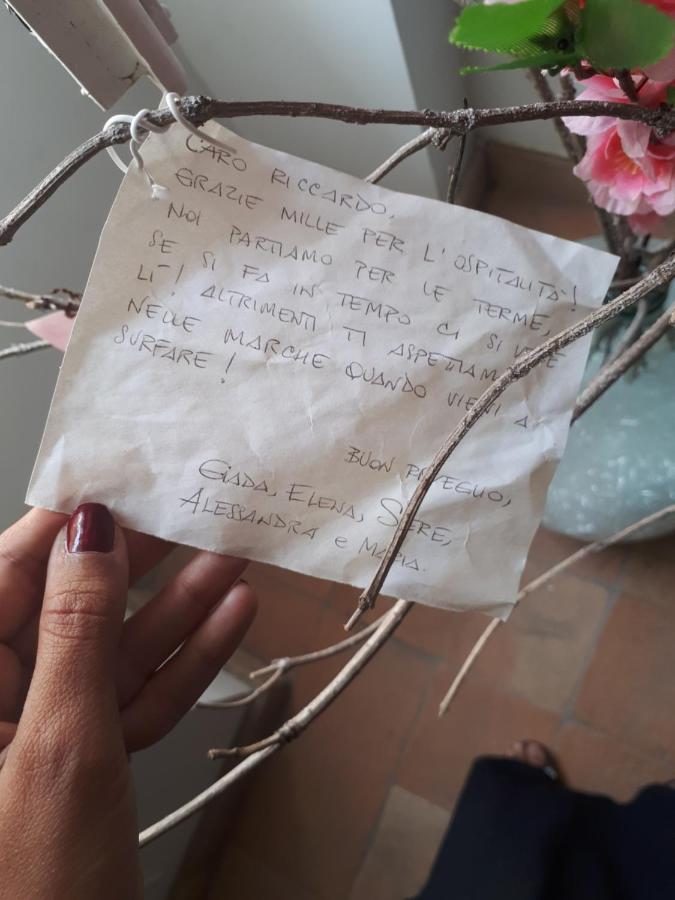 CARO RICCARDO,
GRAZIE MILLE PER L'OSPITALITÀ!
NOI PARTIAMO PER LE TERME,
SE SI FA IN TEMPO CI SI VEDE
LÌ! ALTRIMENTI TI ASPETTIAMO
NELLE MARCHE QUANDO VIENI A
SURFARE!
BUON RISVEGLIO,
GIADA, ELENA, SERE,
ALESSANDRA e MARIA.